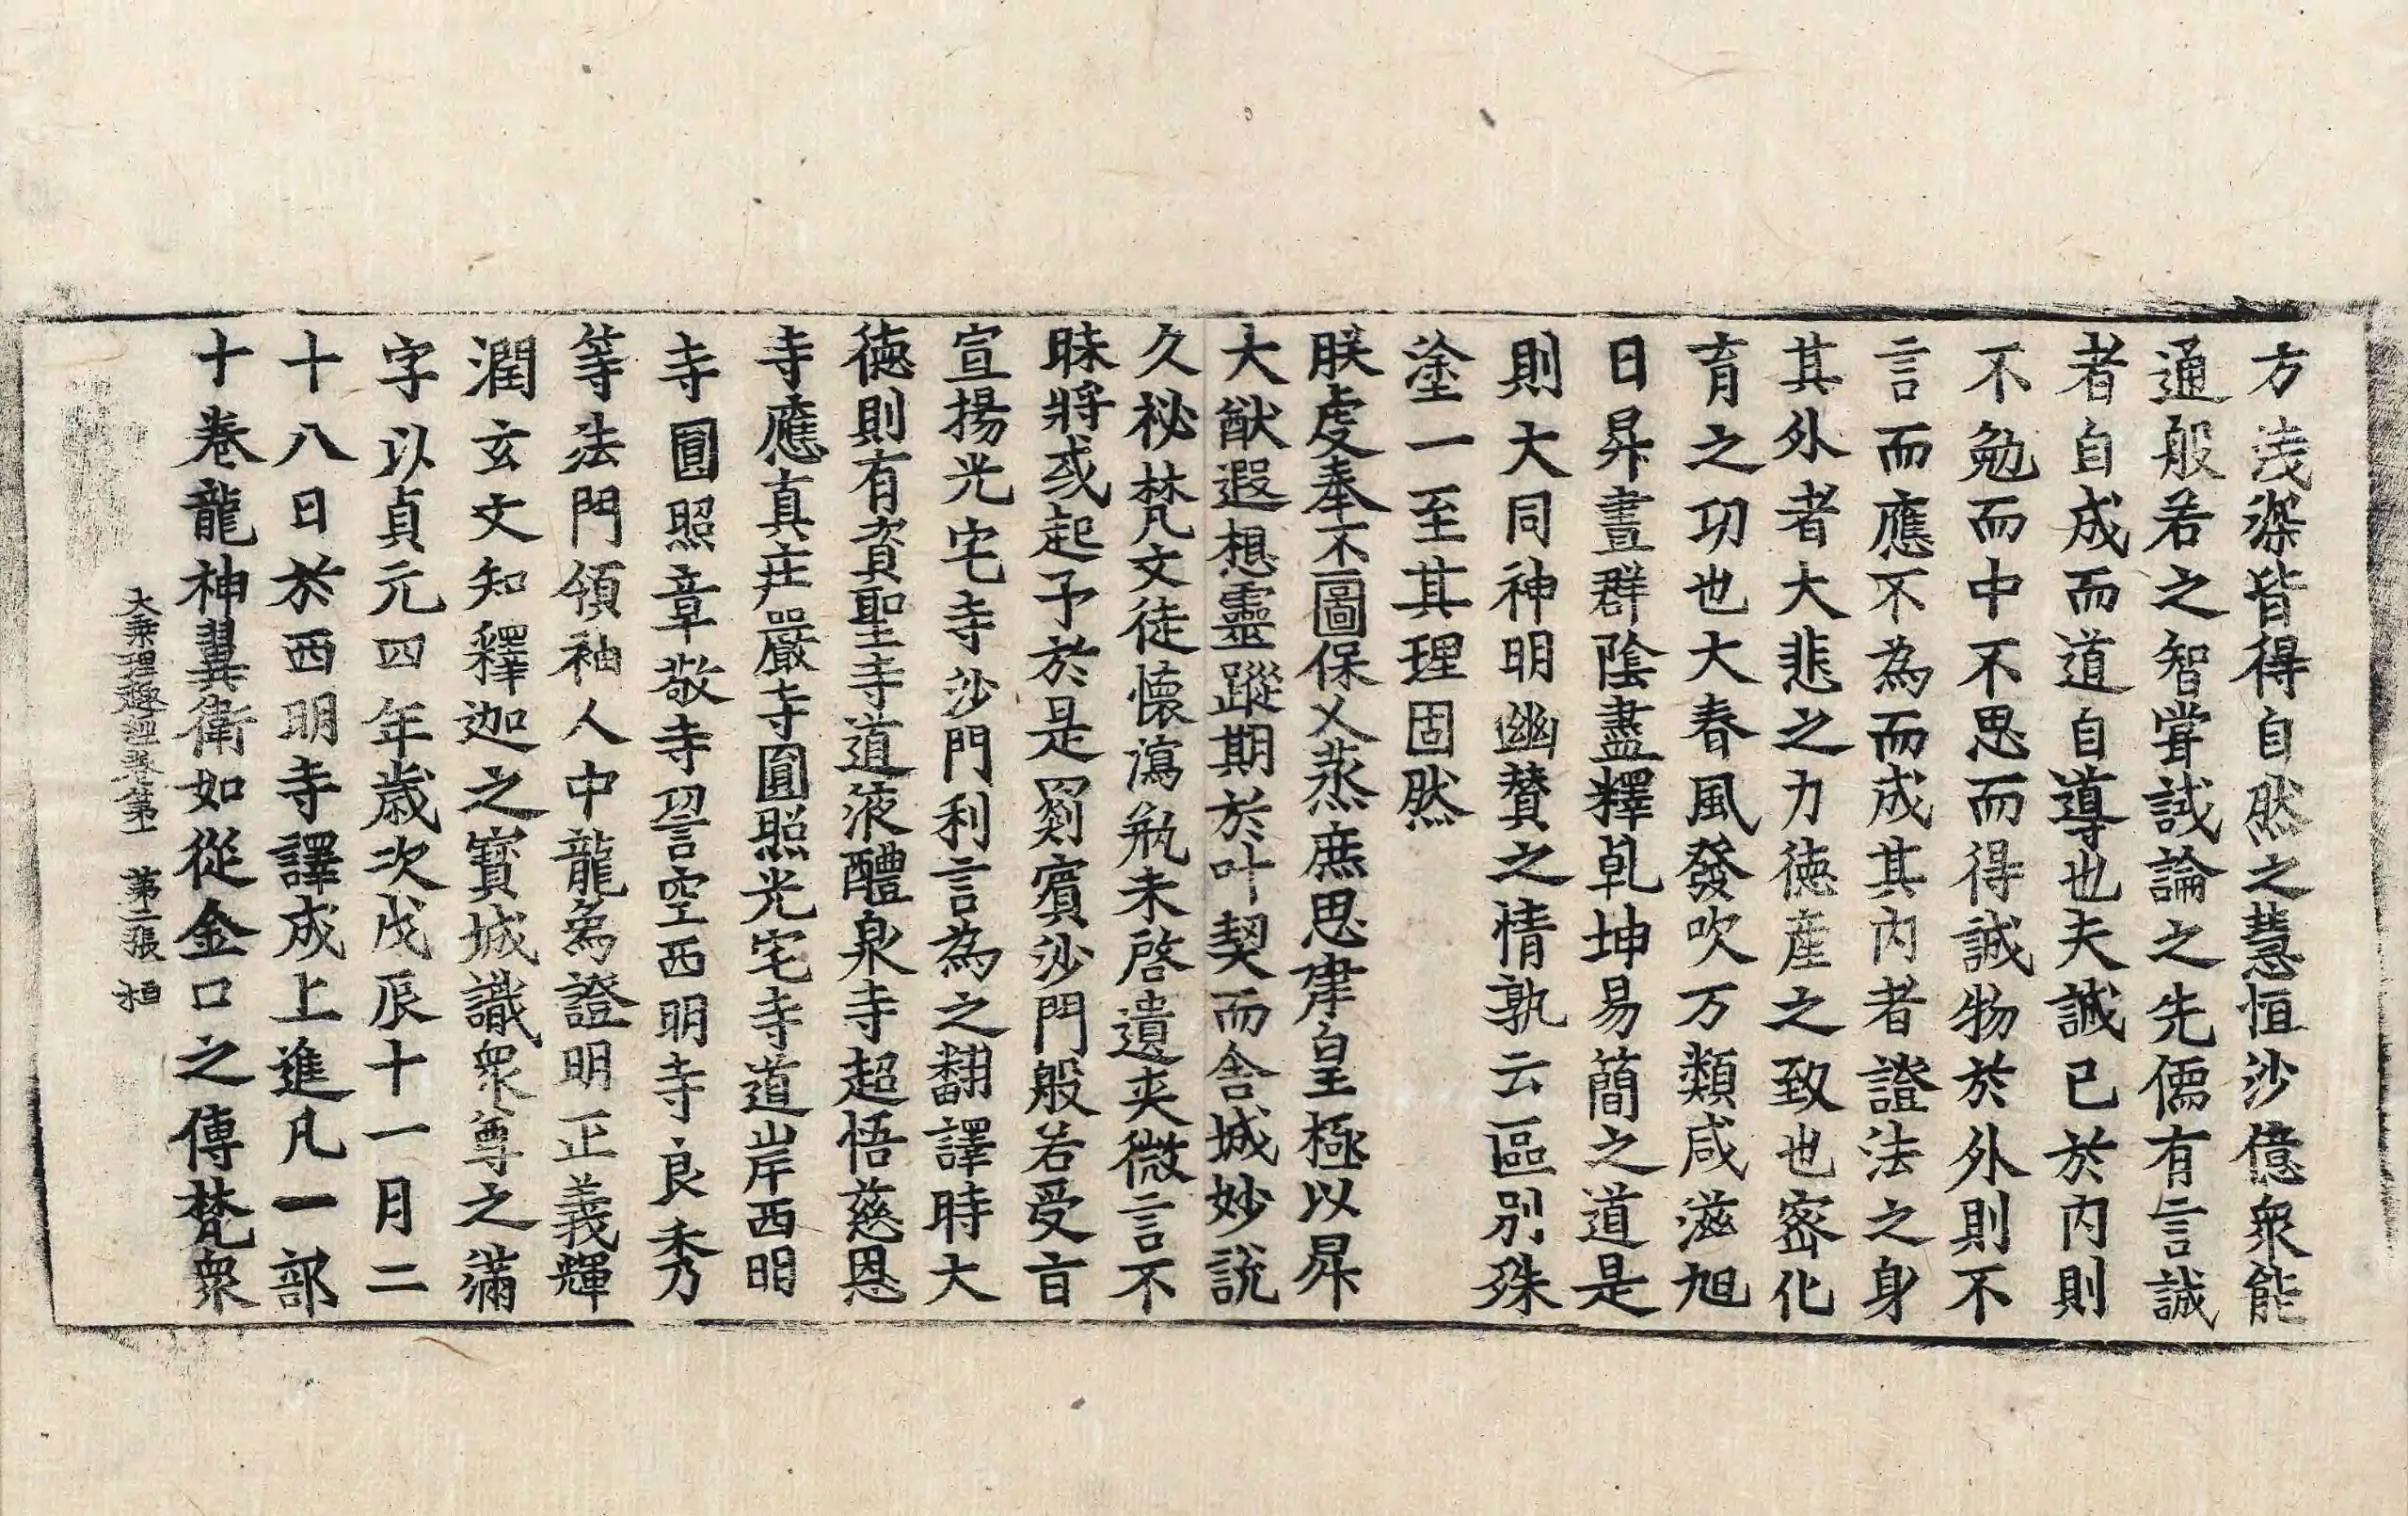 方浅深皆得自然之慧恒沙億衆能
通般若之智嘗試論之先儒有言誠
者自成而道自導也夫誠已於内則
不勉而中不思而得誠物於外則不
言而應不為而成其内者證法之身
其外者大悲之力徳產之致也密化
育之功也大春風發吹万類咸滋旭
日昇晝群陰盡釋乹坤易簡之道是
則大同神明幽贊之情孰云區別殊
塗一至其理固然
朕虔奉丕圖保乂蒸庶思肀皇極以昇
大猷遐想靈蹤期於叶契而舍城妙說
久祕梵文徒懷瀉瓶未啓遺夾微言不
昧將或起予於是罽賓沙門般若受旨
宣揚光宅寺沙門利言為之翻譯時大
徳則有資聖寺道液醴泉寺超悟慈恩
寺應真莊嚴寺圓照光宅寺道岸西明
寺圓照章敬寺䛒空西明寺良秀
等法門領袖人中龍象為證明正義輝
潤玄文知釋迦之寳城識衆尊之滿
字以貞元四年歳次戊辰十一月二
十八日於西明寺譯成上進凡一部
十巻龍神翼衛如從金口之傳梵衆
大乘理趣經卷第一 第二張 桓